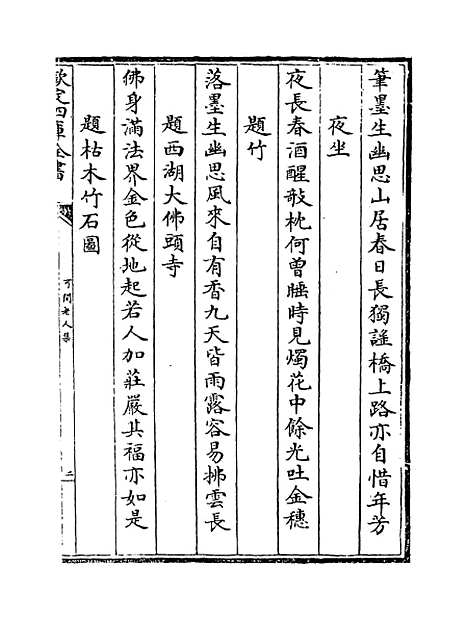 筆墨生幽思山居春日長獨謠橋上路亦自惜年芳
夜坐
夜長春酒醒敧枕何曾睡時見燭花中餘光吐金穗
題竹
落墨生幽思風來自有香九天皆雨露容易拂雲長
題西湖大佛頭寺
佛身滿法界金色從地起若人加莊嚴其福亦如是
題枯木竹石圖
欽定四庫全書
可閒老人集
二